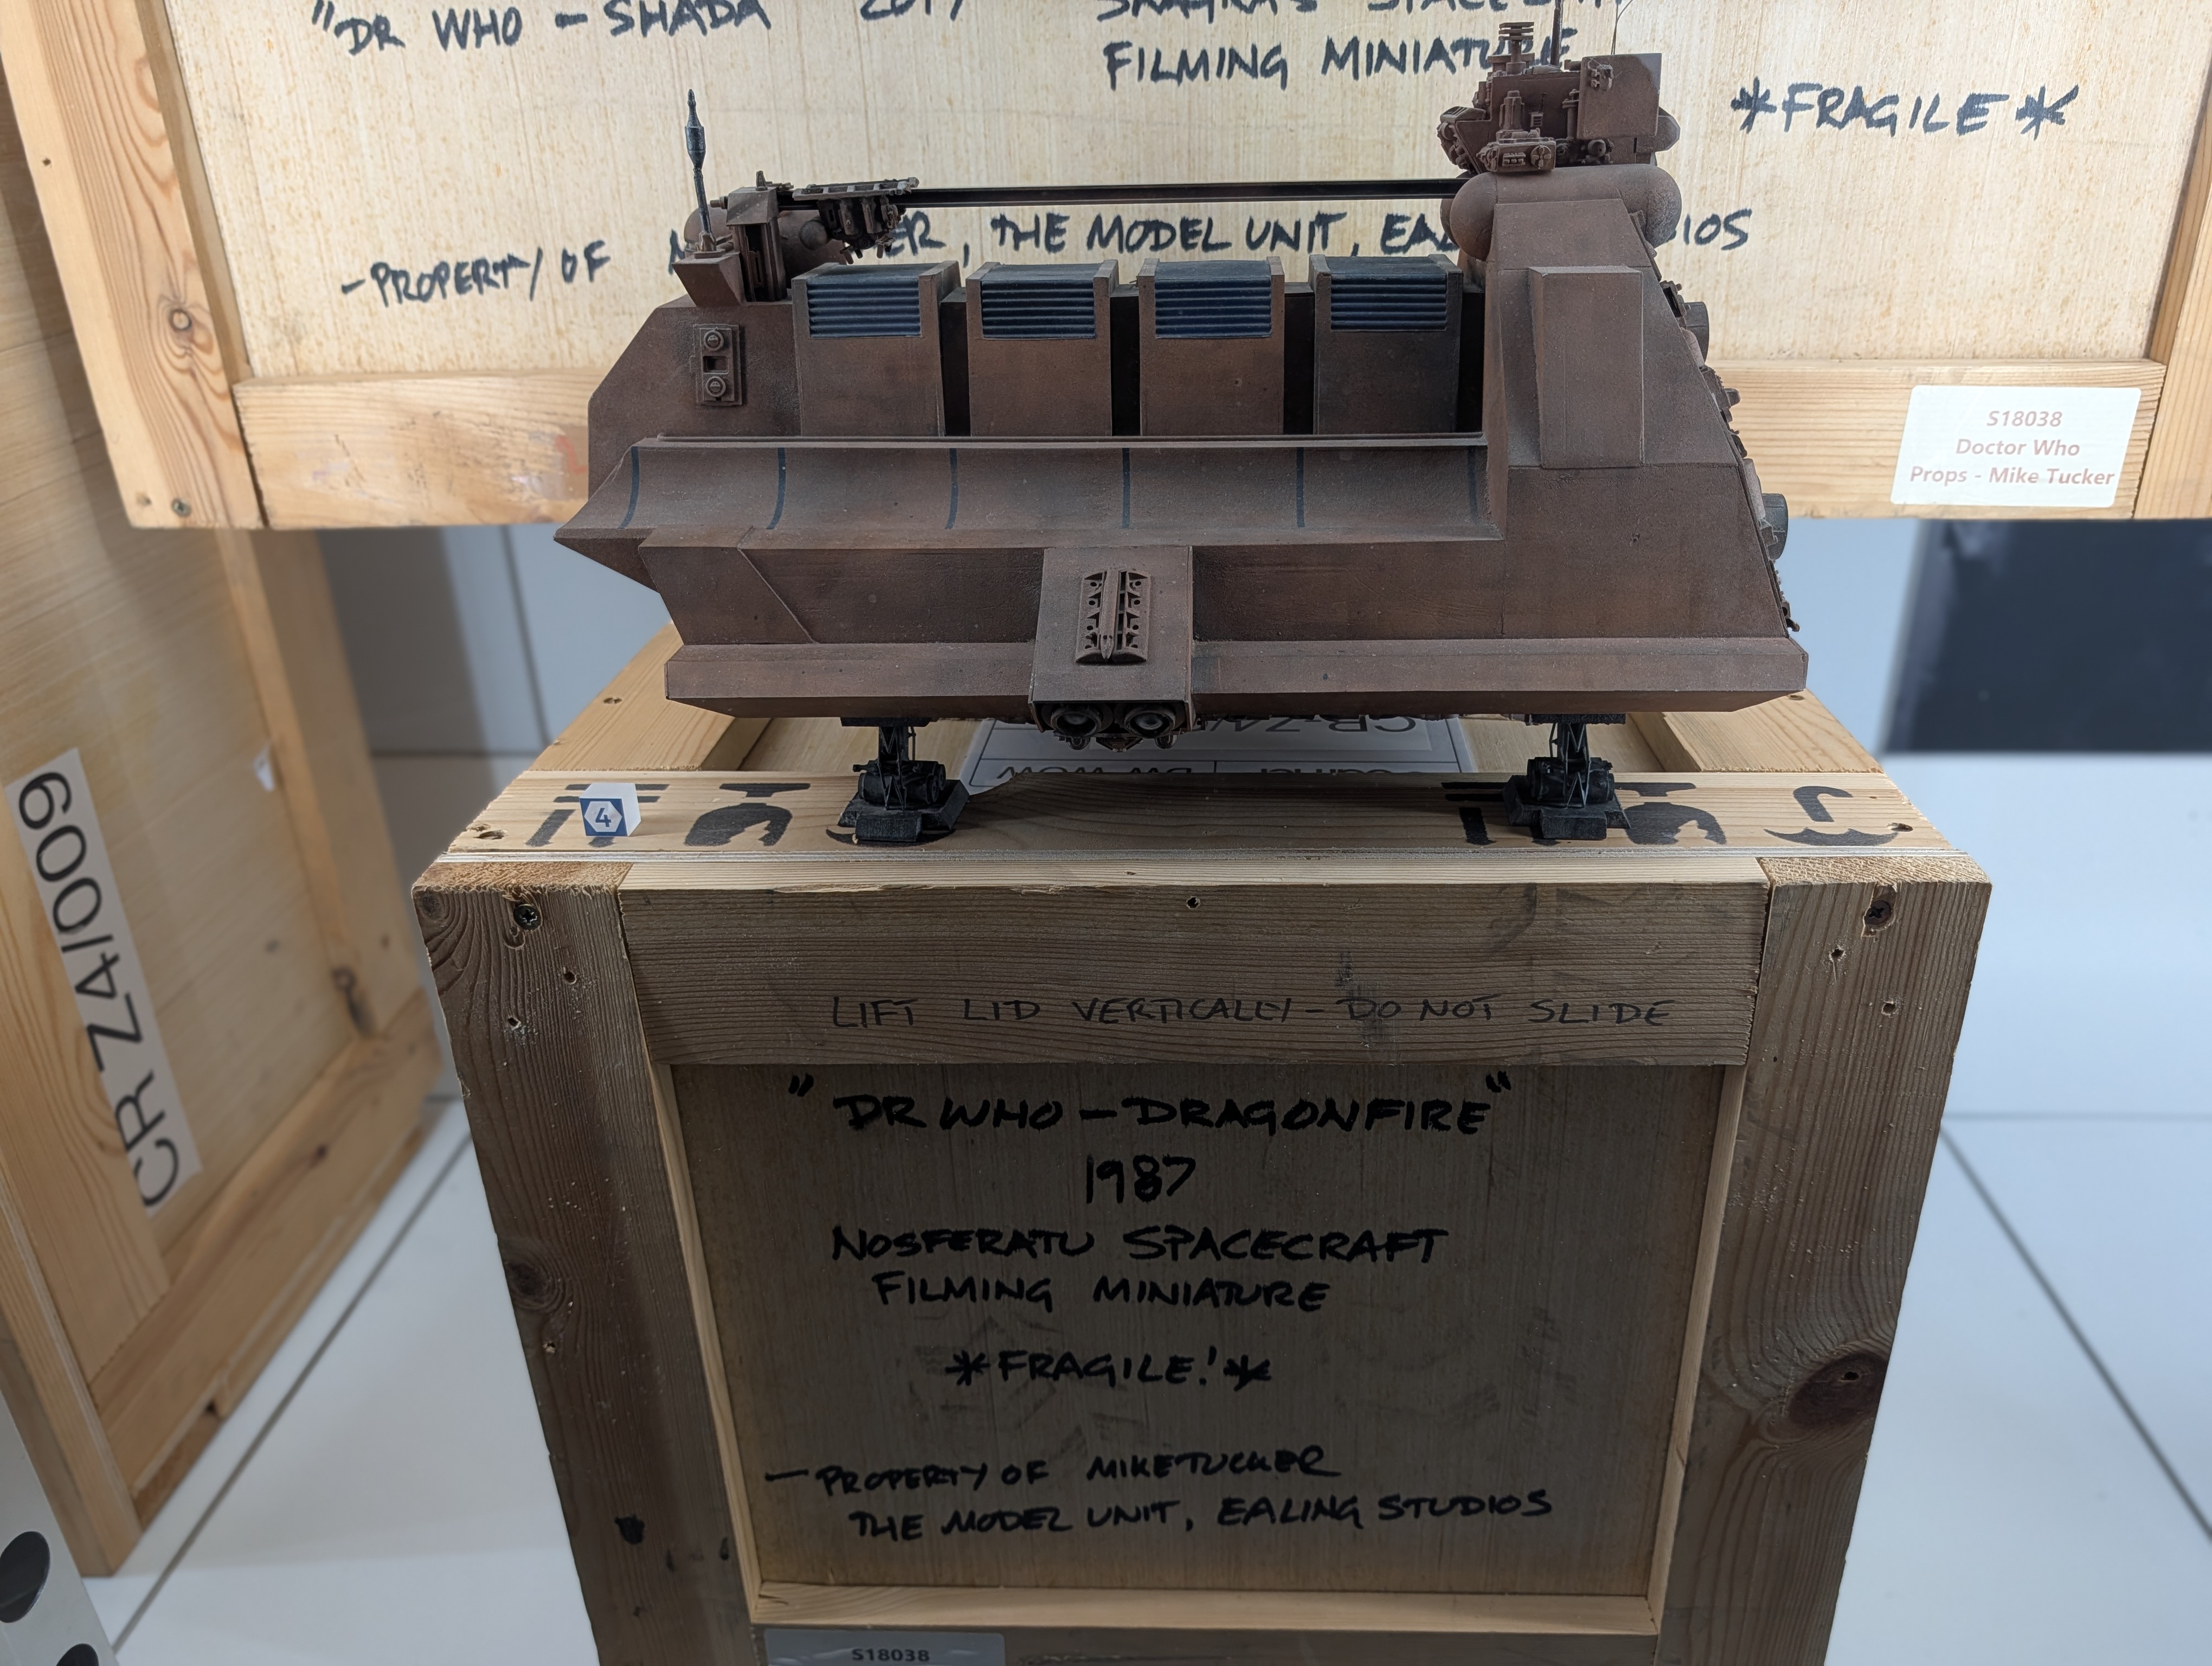 "DR WHO – SHADA 2017
SPACECRAFT
FILMING MINIATURE
*FRAGILE*
– PROPERTY OF
, THE MODEL UNIT,
S18038
Doctor Who
Props - Mike Tucker
CR Z4/009
4
LIFT LID VERTICALLY – DO NOT SLIDE
"DR WHO – DRAGONFIRE"
1987
NOSFERATU SPACECRAFT
FILMING MINIATURE
*FRAGILE!*
– PROPERTY OF MIKE TUCKER
THE MODEL UNIT, EALING STUDIOS
S18038